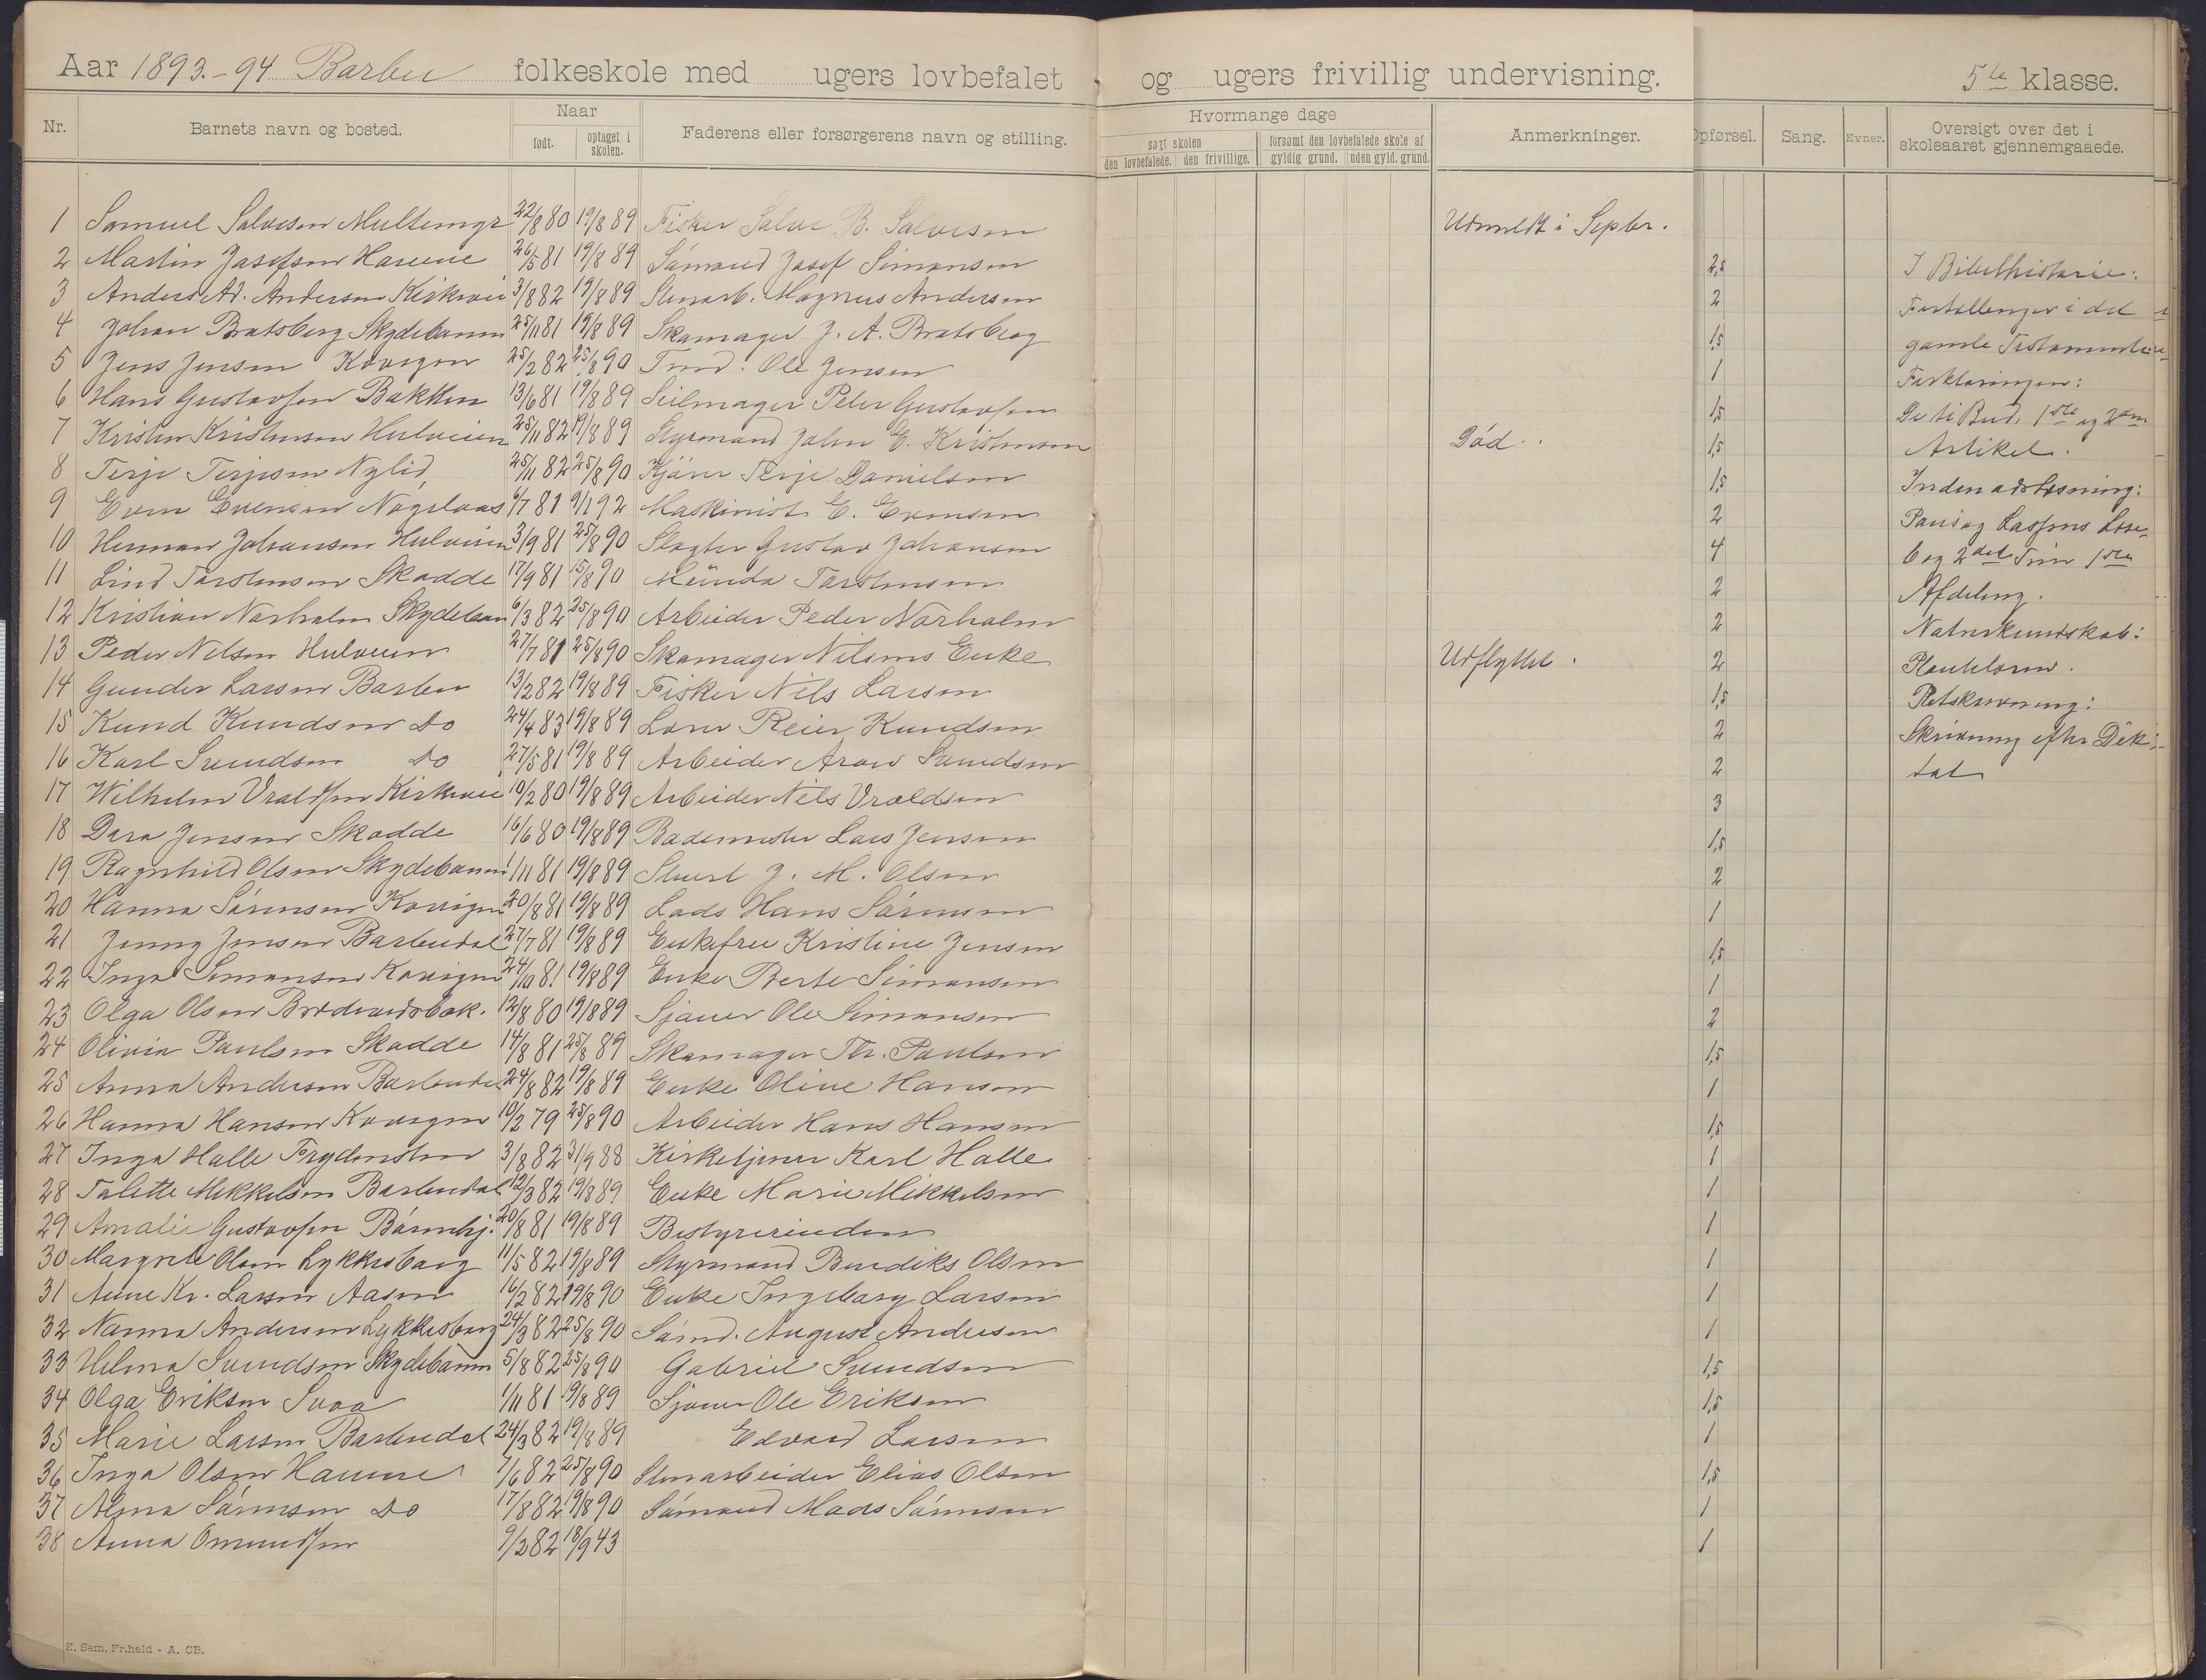 Aar 1893.-94 Barbu folkeskole med ugers lovbefalet og ugers frivillig undervisning. 5te klasse.
Nr. Barnets navn og bosted. Naar født. optaget i skolen. Faderens eller forsørgerens navn og stilling. Hvormange dage søgt skolen den lovbefalede. den frivillige. forsømt den lovbefalede skole af gyldig grund. uden gyld. grund. Anmerkninger. Opførsel. Sang. Evner. Oversigt over det i skoleaaret gjennemgaaede.
1 Samuel Salvesen 22/8 80 19/8 89 Fisker Salve B. Salvesen Udmeldt i Septbr.
2 Martin Josefsen Havene 26/5 81 19/8 89 Sömand Josef Simonsen 2,5 I Bibelhistorie:
3 Anders Ad. Andersen Kirkevei 3/8 82 19/8 89 Stenarb. Magnus Andersen 2 Fortællinger i det
4 Johan Bratsberg Skydebanen 25/11 81 19/8 89 Skomager J. A. Bratsberg 1,5 gamle Testamente
5 Jens Jensen Kovigen 25/2 82 25/8 90 Tmd. Ole Jensen 1 Forklaringen:
6 Hans Gustavsen Bakken 13/6 81 19/8 89 Seilmager Peter Gustavsen 1,5 De ti Bud, 1ste og 2den
7 Kristen Kristensen Hulveien 25/11 82 19/8 89 Styrmand John E. Kristensen Död. 1,5 Artikel.
8 Terje Terjesen Nylid 25/11 82 25/8 90 Terje Danielsen 1,5 Indenadslæsning:
9 Even Evensen 6/7 81 9/1 92 Maskinist E. Evensen 2 Pauss og Lassens Læse-
10 Herman Johansen Hulveien 3/9 81 25/8 90 Slagter Gustav Johansen 4 bog 2det Trin 1ste
11 Lind Torstensen Skodde 17/9 81 15/8 90 Torstensen 2 Afdeling.
12 Kristian Norholm Skydeban 6/3 82 25/8 90 Arbeider Peder Norholm 2 Naturkundskab:
13 Peder Nilsen Hulveien 27/7 81 25/8 90 Skomager Nilsens Enke Udflyttet. 2 Plantelæren.
14 Gunder Larsen Barbu 13/2 82 19/8 89 Fisker Nils Larsen 1,5 Retskrivning:
15 Knud Knudsen Do 24/4 83 19/8 89 Reier Knudsen 2 Skrivning efter Dik-
16 Karl Svendsen Do 27/5 81 19/8 89 Arbeider Aron Svendsen 2 tat
17 Wilhelm Vraldsen Kirkevei 10/2 80 19/8 89 Arbeider Nils Vraldsen 3
18 Dora Jensen Skodde 16/6 80 19/8 89 Bademester Lars Jensen 1,5
19 Ragnhild Olsen Skydebanen 1/11 81 19/8 89 Stuert J. M. Olsen 2
20 Hanna Sörensen Kovigen 20/8 81 19/8 89 Lods Hans Sörensen 1
21 Jenny Jensen Barbudal 27/7 81 19/8 89 Enkefru Kristine Jensen 1,5
22 Inga Simonsen Kovigen 24/10 81 19/8 89 Enke Berte Simonsen 1
23 Olga Olsen 12/8 80 19/8 89 Sjauer Ole Simonsen 2
24 Olivia Paulsen Skodde 14/8 81 25/8 89 Skomager Th. Paulsen 1,5
25 Anna Andersen Barbudal 24/8 82 19/8 89 Enke Oline Hansen 1
26 Hanna Hansen Kovigen 10/2 79 25/8 90 Arbeider Hans Hansen 1,5
27 Inga Halle Frydensten 3/8 82 31/9 88 Kirketjener Karl Halle 1
28 Talette Mikkelsen Barbudal 12/3 82 19/8 89 Enke Marie Mikkelsen 1
29 Amalie Gustavsen Börnehj. 20/8 81 19/8 89 Bestyrerinden 1
30 Margrete Olsen Lykkesborg 11/5 82 19/8 89 Styrmand Bendiks Olsen 1
31 Anne Kr. Larsen Aasen 16/2 82 19/8 90 Enke Ingeborg Larsen 1
32 Nanna Andersen Lykkesborg 24/3 82 25/8 90 Sömd. August Andersen 1
33 Helma Svendsen Skydebanen 5/8 82 25/8 90 Gabriel Svendsen 1,5
34 Olga Eriksen Svoa 1/11 81 19/8 89 Sjauer Ole Eriksen 1,5
35 Marie Larsen Barbudal 24/3 82 19/8 89 Edvard Larsen 1
36 Inga Olsen Havene 7/6 82 25/8 90 Stenarbeider Elias Olsen 1,5
37 Alma Sörensen Do 17/8 82 19/8 90 Sömand Mads Sörensen 1
38 Anna Omundsen 9/2 82 18/9 43 1
E. Sem, Fr.hald - A. CB.